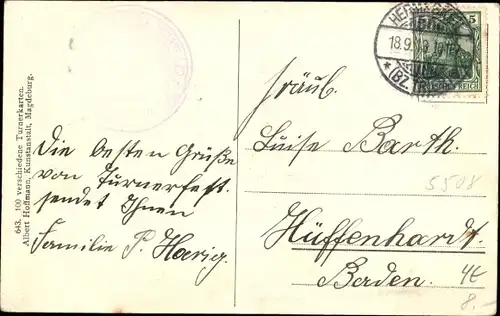 643. 100 verschiedene Turnerkarten.
Albert Hoffmann, Kunstanstalt, Magdeburg.
Die besten Grüße
von Turnerfest.
sendet Ihnen
Familie P. Harig.
5
18.9.
*(BZ.
REICH
Fräul.
Luise Barth.
5508
Hüffenhardt.
Baden.
8.-